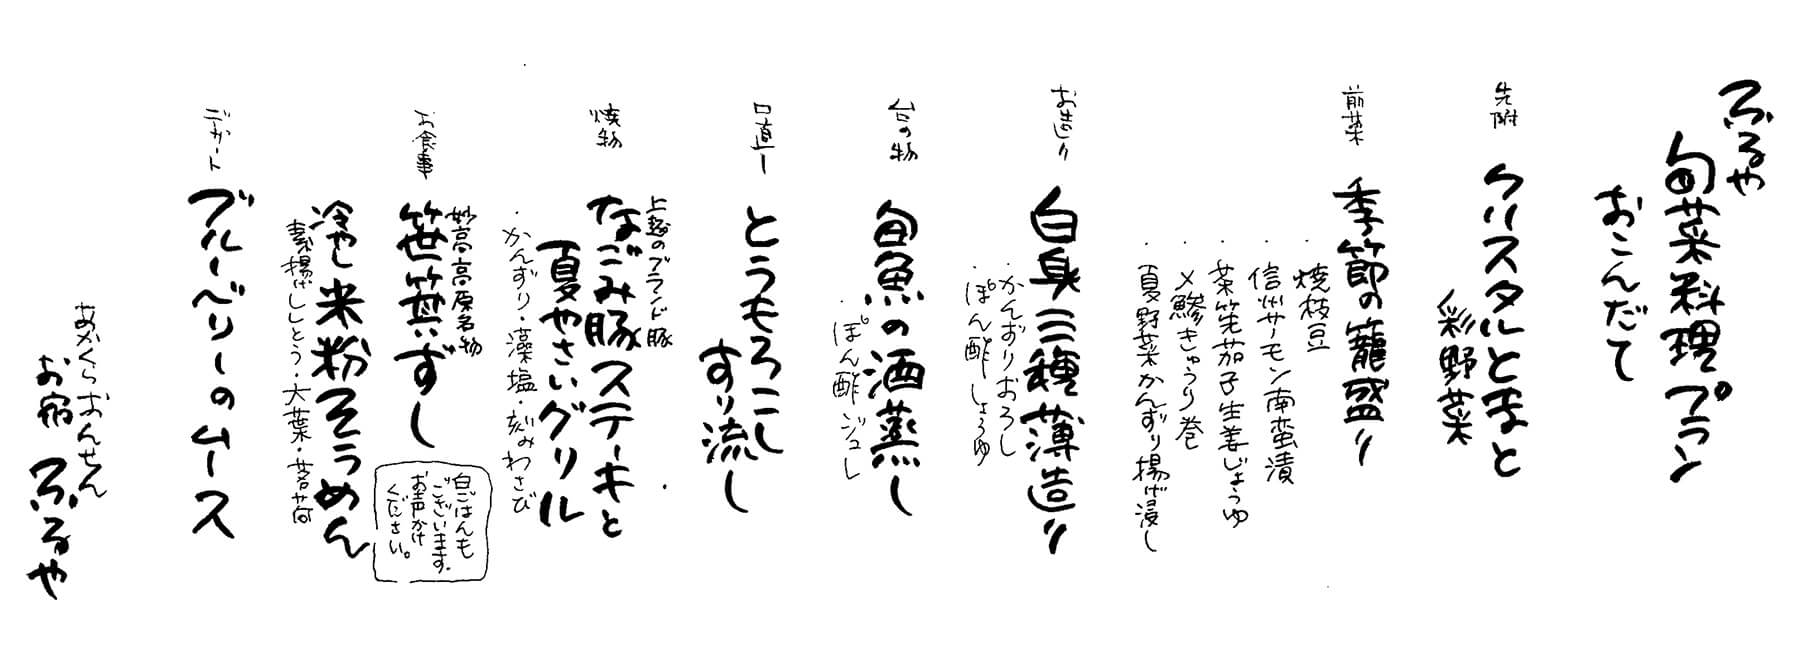 ふるや
旬菜料理プラン
おこんだて
先附
クリスタルとまと
彩野菜
前菜
季節の籠盛り
・焼枝豆
・信州サーモン南蛮漬
・茶筅茄子生姜じょうゆ
・〆鯵きゅうり巻
・夏野菜かんずり揚げ浸し
お造り
白身三種薄造り
・かんずりおろし
・ぽん酢しょうゆ
台の物
旬魚の酒蒸し
・ぽん酢ジュレ
口直し
とうもろこし
すり流し
焼物
上越のブランド豚
なごみ豚ステーキと
夏やさいグリル
・かんずり・藻塩・刻みわさび
お食事
妙高高原名物
笹箕ずし
白ごはんも
ございます。
お声かけ
ください。
冷やし米粉そうめん
素揚げししとう・大葉・茗荷
デザート
ブルーベリーのムース
あかくらおんせん
お宿 ふるや